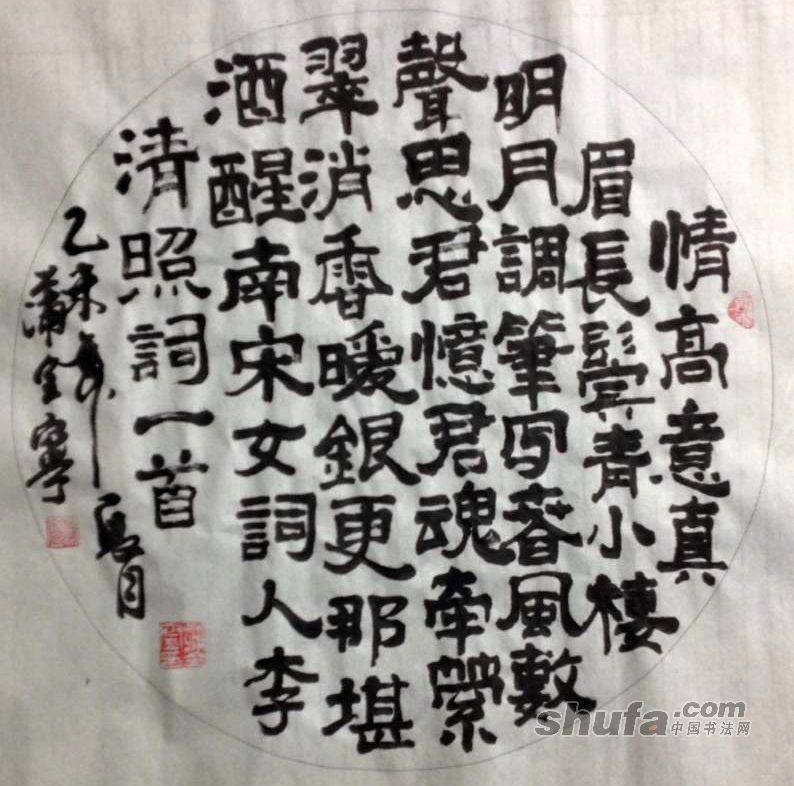 情高意真
眉長鬢青小樓
明月調筆写春風數
聲思君憶君魂牽縈
翠消香曖銀更那堪
酒醒南宋女詞人李
清照詞一首
乙未年 月
shufa.com
中国书法网